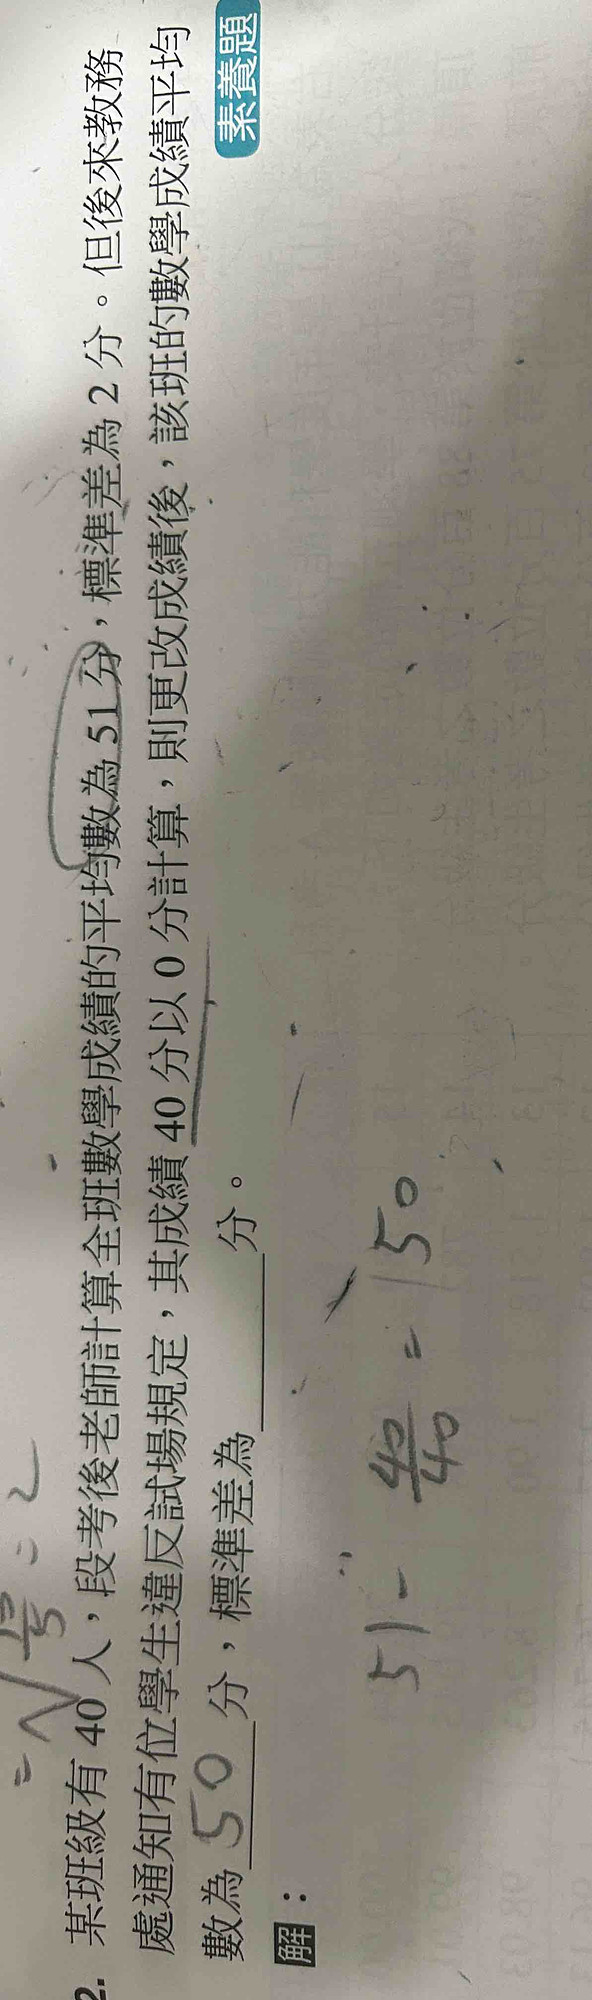 = √10/5 = 2
2. 某班級有 40 人，段考後老師計算全班數學成績的平均數為 51 分，標準差為 2 分。但後來教務
處通知有位學生違反試場規定，其成績 40 分以 0 分計算，則更改成績後，該班的數學成績平均
數為 50 分，標準差為 分。
素養題
解：
51 - 40/40 = 50